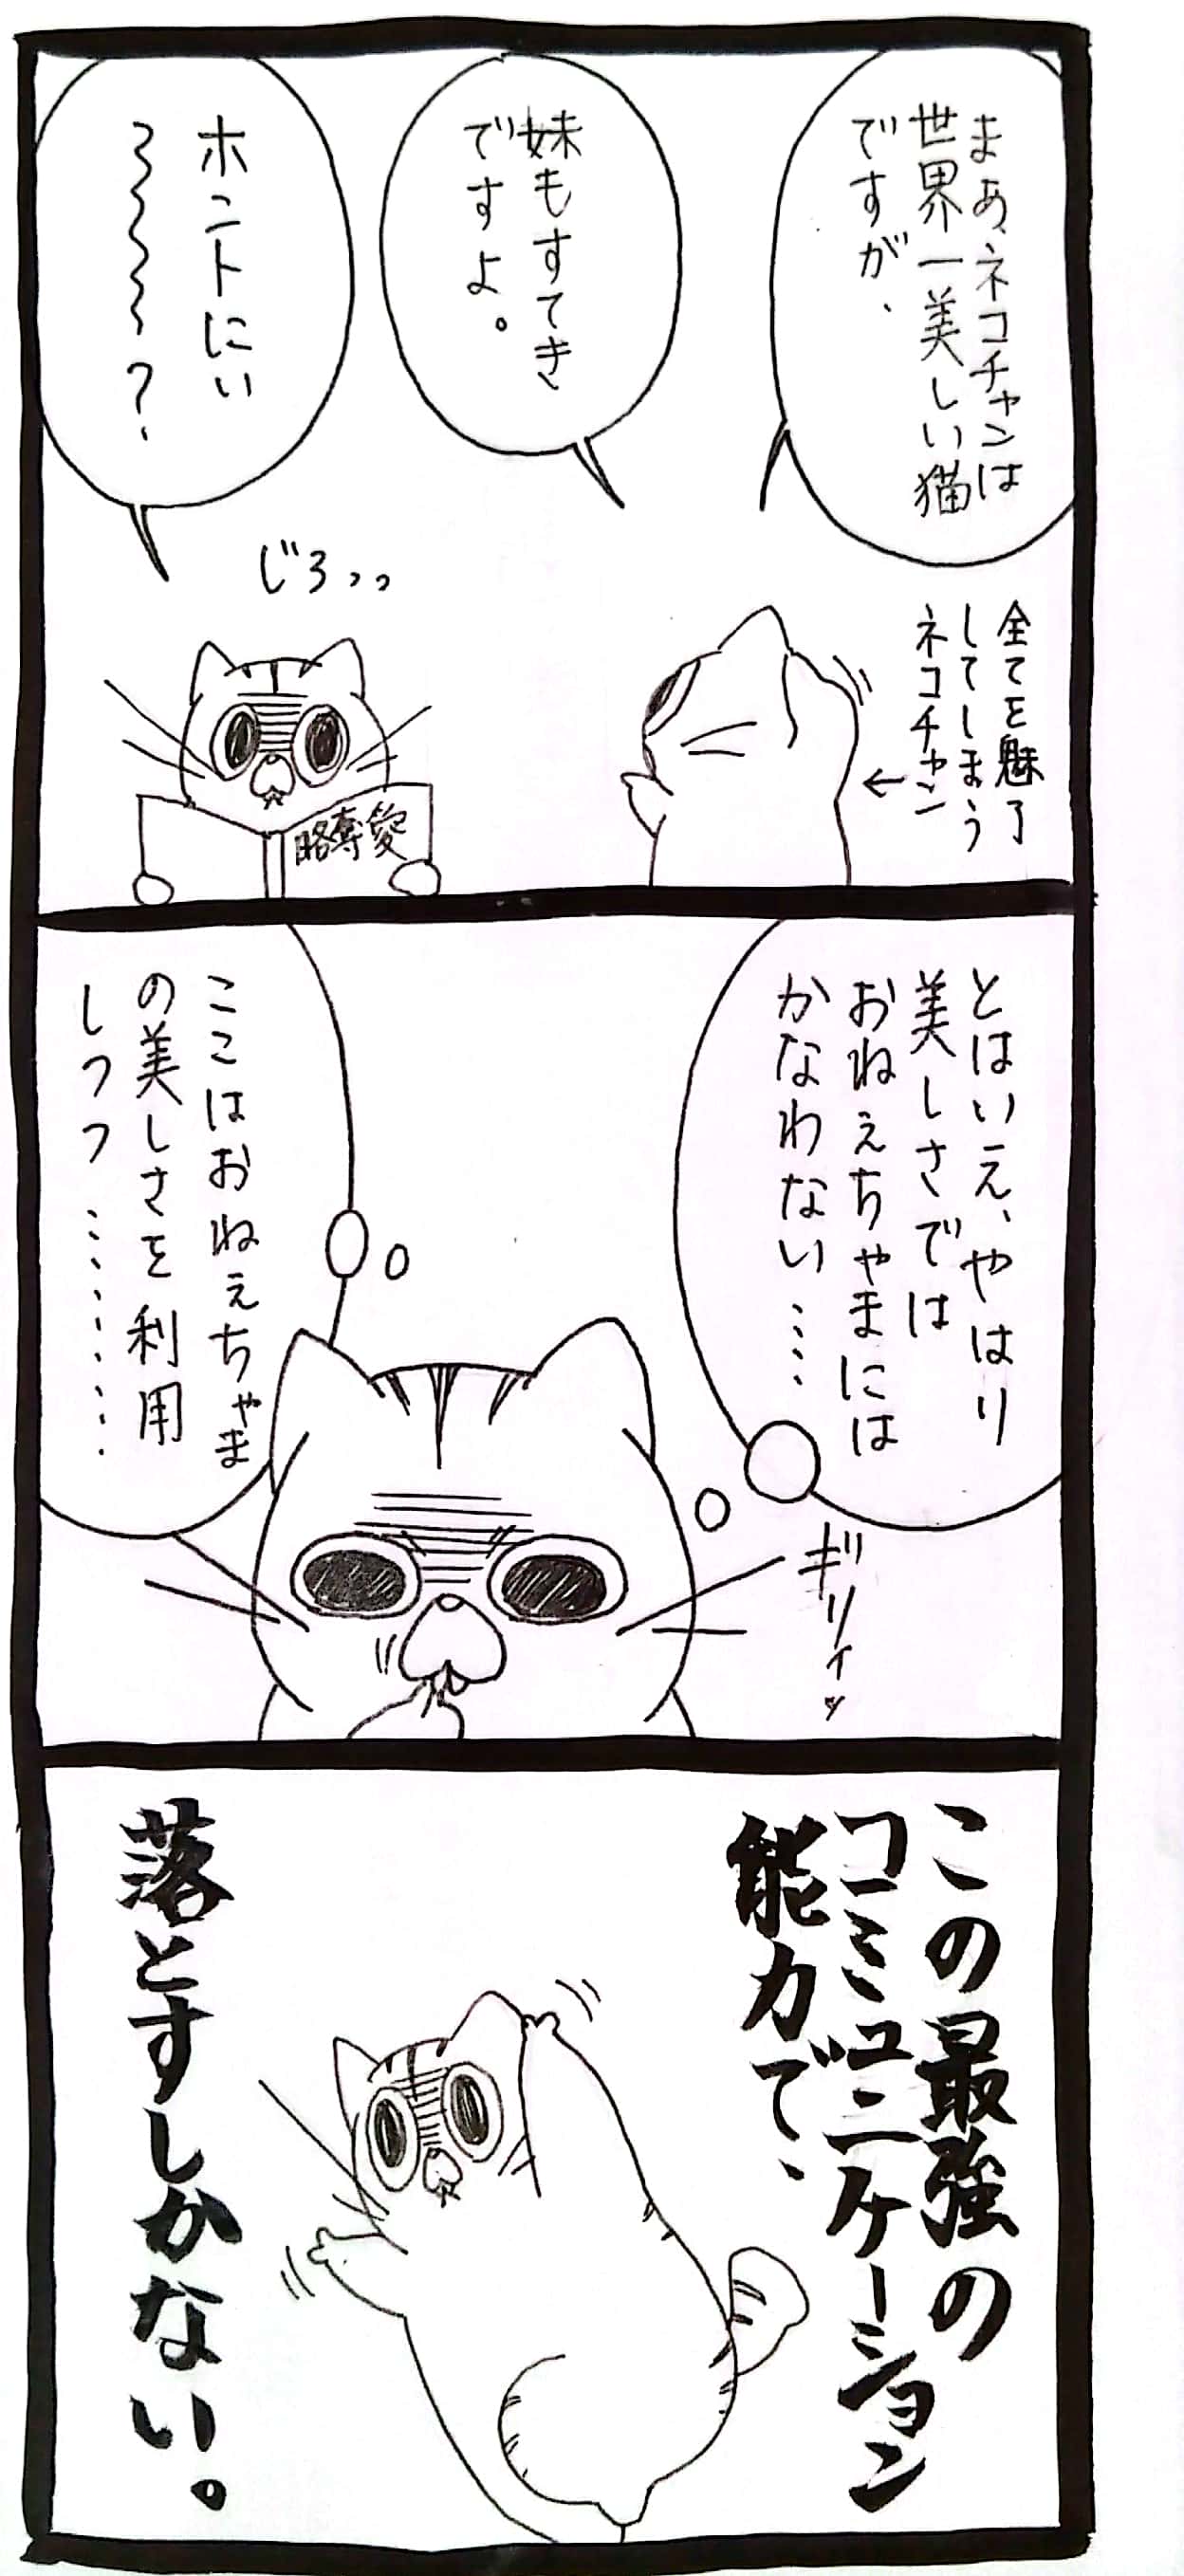 まあ、ネコチャンは
世界一美しい猫
ですが、
全てを魅了
してしまう
ネコチャン
妹もすてき
ですよ。
じろッッ
略奪愛
ホントにい
〜〜〜〜?
とはいえ、やはり
美しさでは
おねぇちゃまには
かなわない……
ギリィッ
ここはおねぇちゃま
の美しさを利用
しつつ………
この最強の
コミュニケーション
能力で、
落とすしかない。